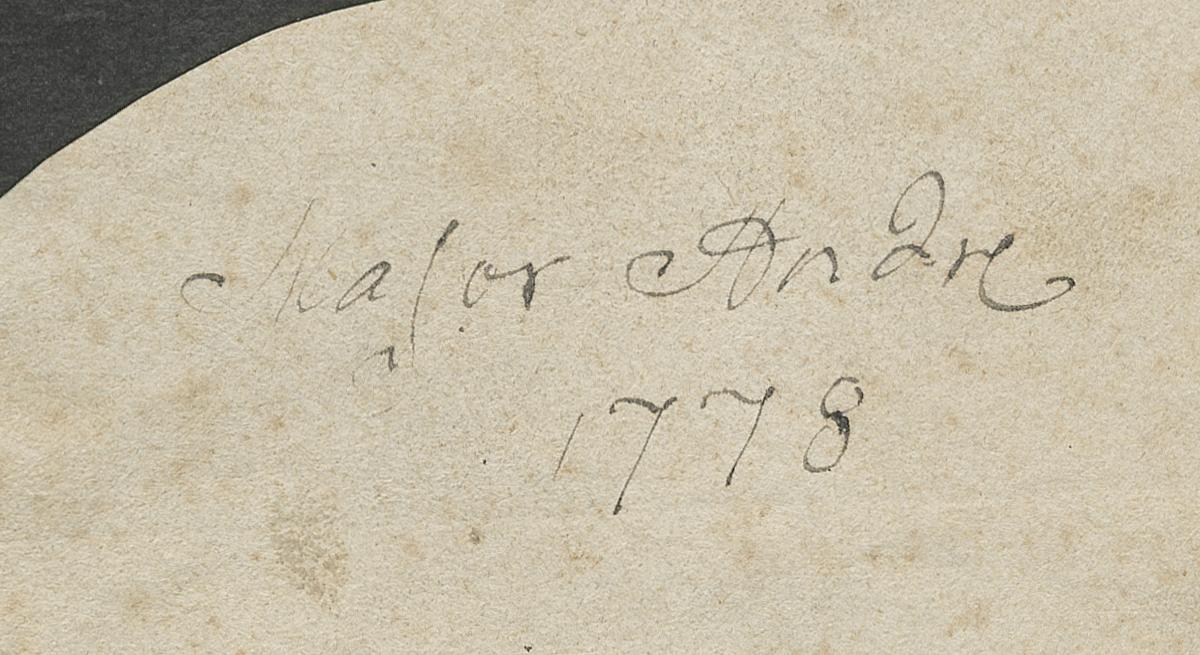 Major Andre
1778